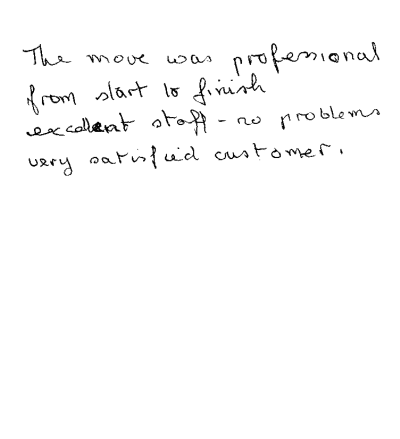 The move was professional
from start to finish
excellent staff - no problems
very satisfied customer.